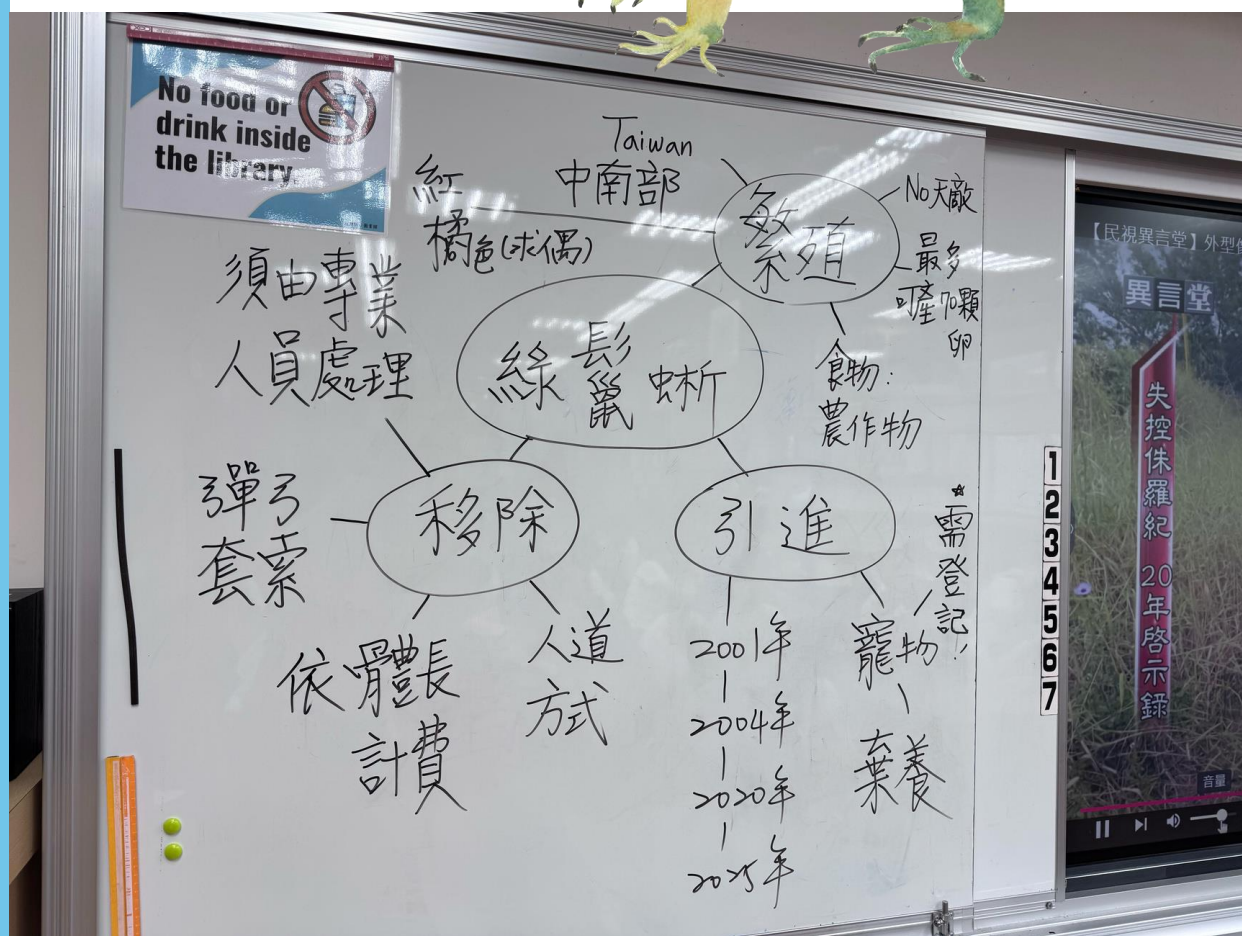 No food or
drink inside
the library.
Taiwan
中南部
紅
橘色(求偶)
繁殖
No天敵
最多
可產70顆
卵
食物:
農作物
綠鬣蜥
須由專業
人員處理
移除
彈弓
套索
依體長
計費
人道
方式
引進
2001年
2004年
2020年
2025年
寵物
棄養
*需登記!
1
2
3
4
5
6
7
【民視異言堂】外型
異言堂
失控侏羅紀 20年啓示錄
音量